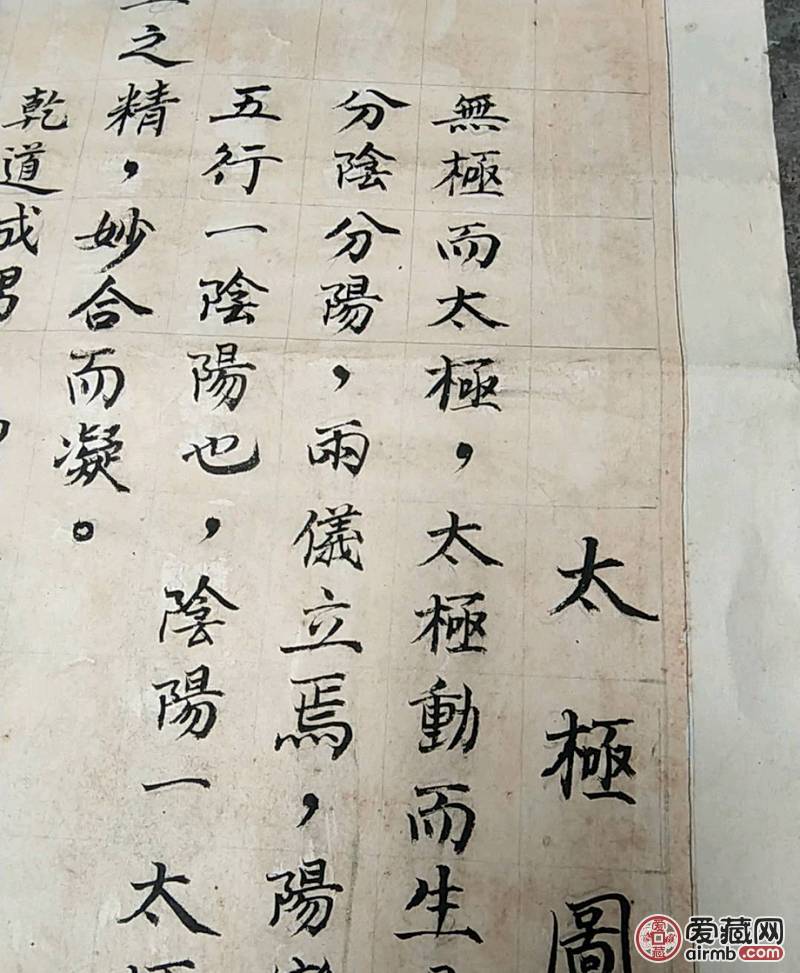 太極圖
無極而太極，太極動而生
分陰分陽，兩儀立焉，陽
五行一陰陽也，陰陽一太極
之精，妙合而凝。
乾道成男
爱藏网
airmb.com